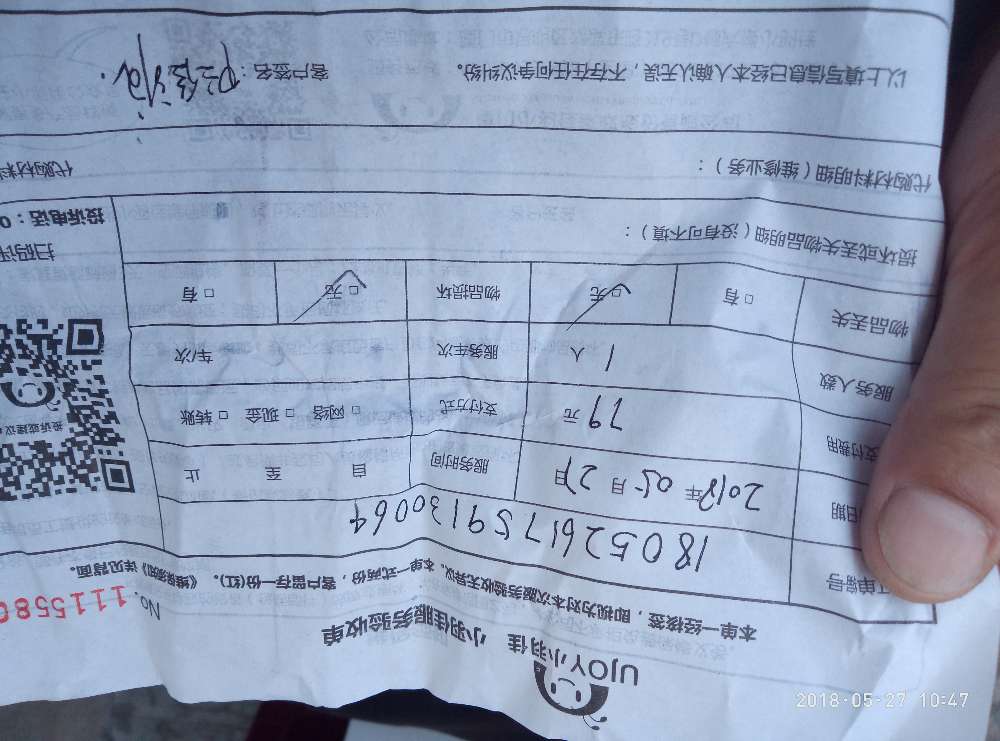 UJOY小羽佳 小羽佳服务验收单
No. 111558
本单一经核签，即视为对本次服务验收无异议。本单一式两份，客户留存一份(红)。《维保须知》详见背面。
工单编号 1805261759130064
日期 2018年 05月 27日 服务时间 自 至 止
支付费用 79元 支付方式 □ 网络 □ 现金 □ 转账
服务人数 1人 服务车次 车/次
物品丢失 □ 有 □ 无 物品损坏 □ 无 □ 有
投诉或建议
扫码评
投诉电话：0
损坏或丢失物品明细（没有可不填）：
代购材料明细（维修业务）：
代购材料
以上填写信息已经本人确认无误，不存在任何争议纠纷。 客户签名：
2018-05-27 10:47